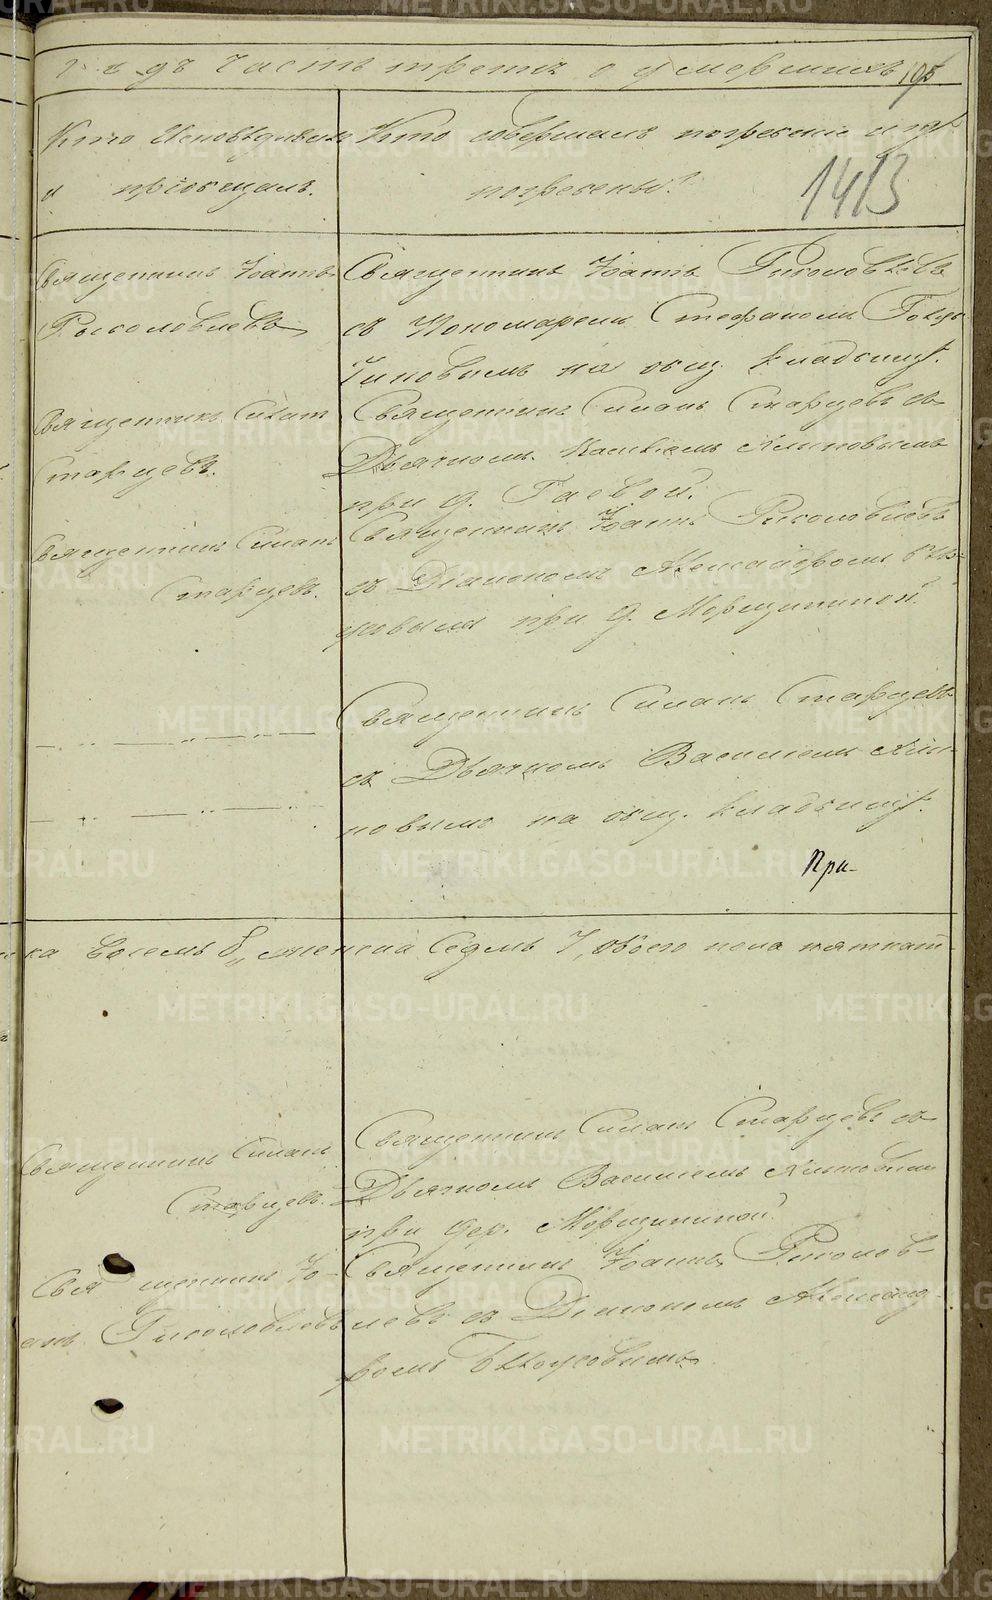 годъ часть третія о умершихъ 195
Кто Исповѣдывалъ
и пріобщалъ.
Кто совершалъ погребеніе и гдѣ
погребены?
1413
Священникъ Іоаннъ
Рысколовлевъ
Священникъ Іоаннъ
съ Пономаремъ Стефаномъ
на общ. кладбищѣ.
Священникъ Симонъ
Старцевъ.
Священникъ Симонъ Старцевъ съ
Дьячкомъ Климовымъ
при д. Гаевой.
Священникъ Симонъ
Старцевъ.
Священникъ Іоаннъ
съ Діакономъ Александромъ
при д. Морщининой.
Священникъ Симонъ Старцевъ
съ Дьячкомъ Василіемъ Кли-
мовымъ на общ. кладбищѣ.
При-
ка восемь 8, женска Седмь 7, обоего пола пятнат-
Священникъ Симонъ
Старцевъ.
Священникъ Симонъ Старцевъ съ
Дьячкомъ Василіемъ Климовымъ
при дер. Морщининой.
Священникъ Іо-
аннъ
Священникъ Іоаннъ
левъ съ Діакономъ Александ-
ромъ
METRIKI.GASO-URAL.RU